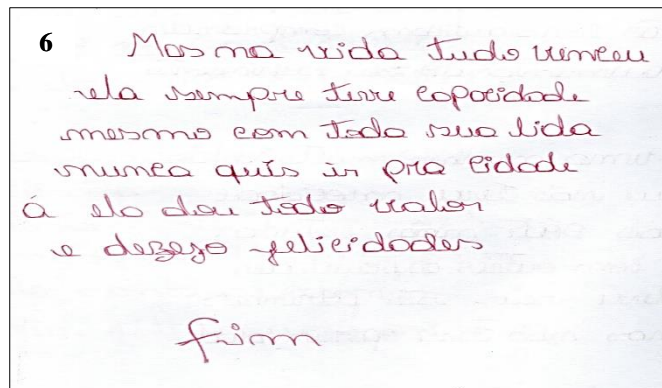 6
Mas na vida tudo venceu
ela sempre teve capacidade
mesmo com toda sua lida
nunca quis ir pra cidade
á ela dou todo valor
e dezejo felicidades
fim